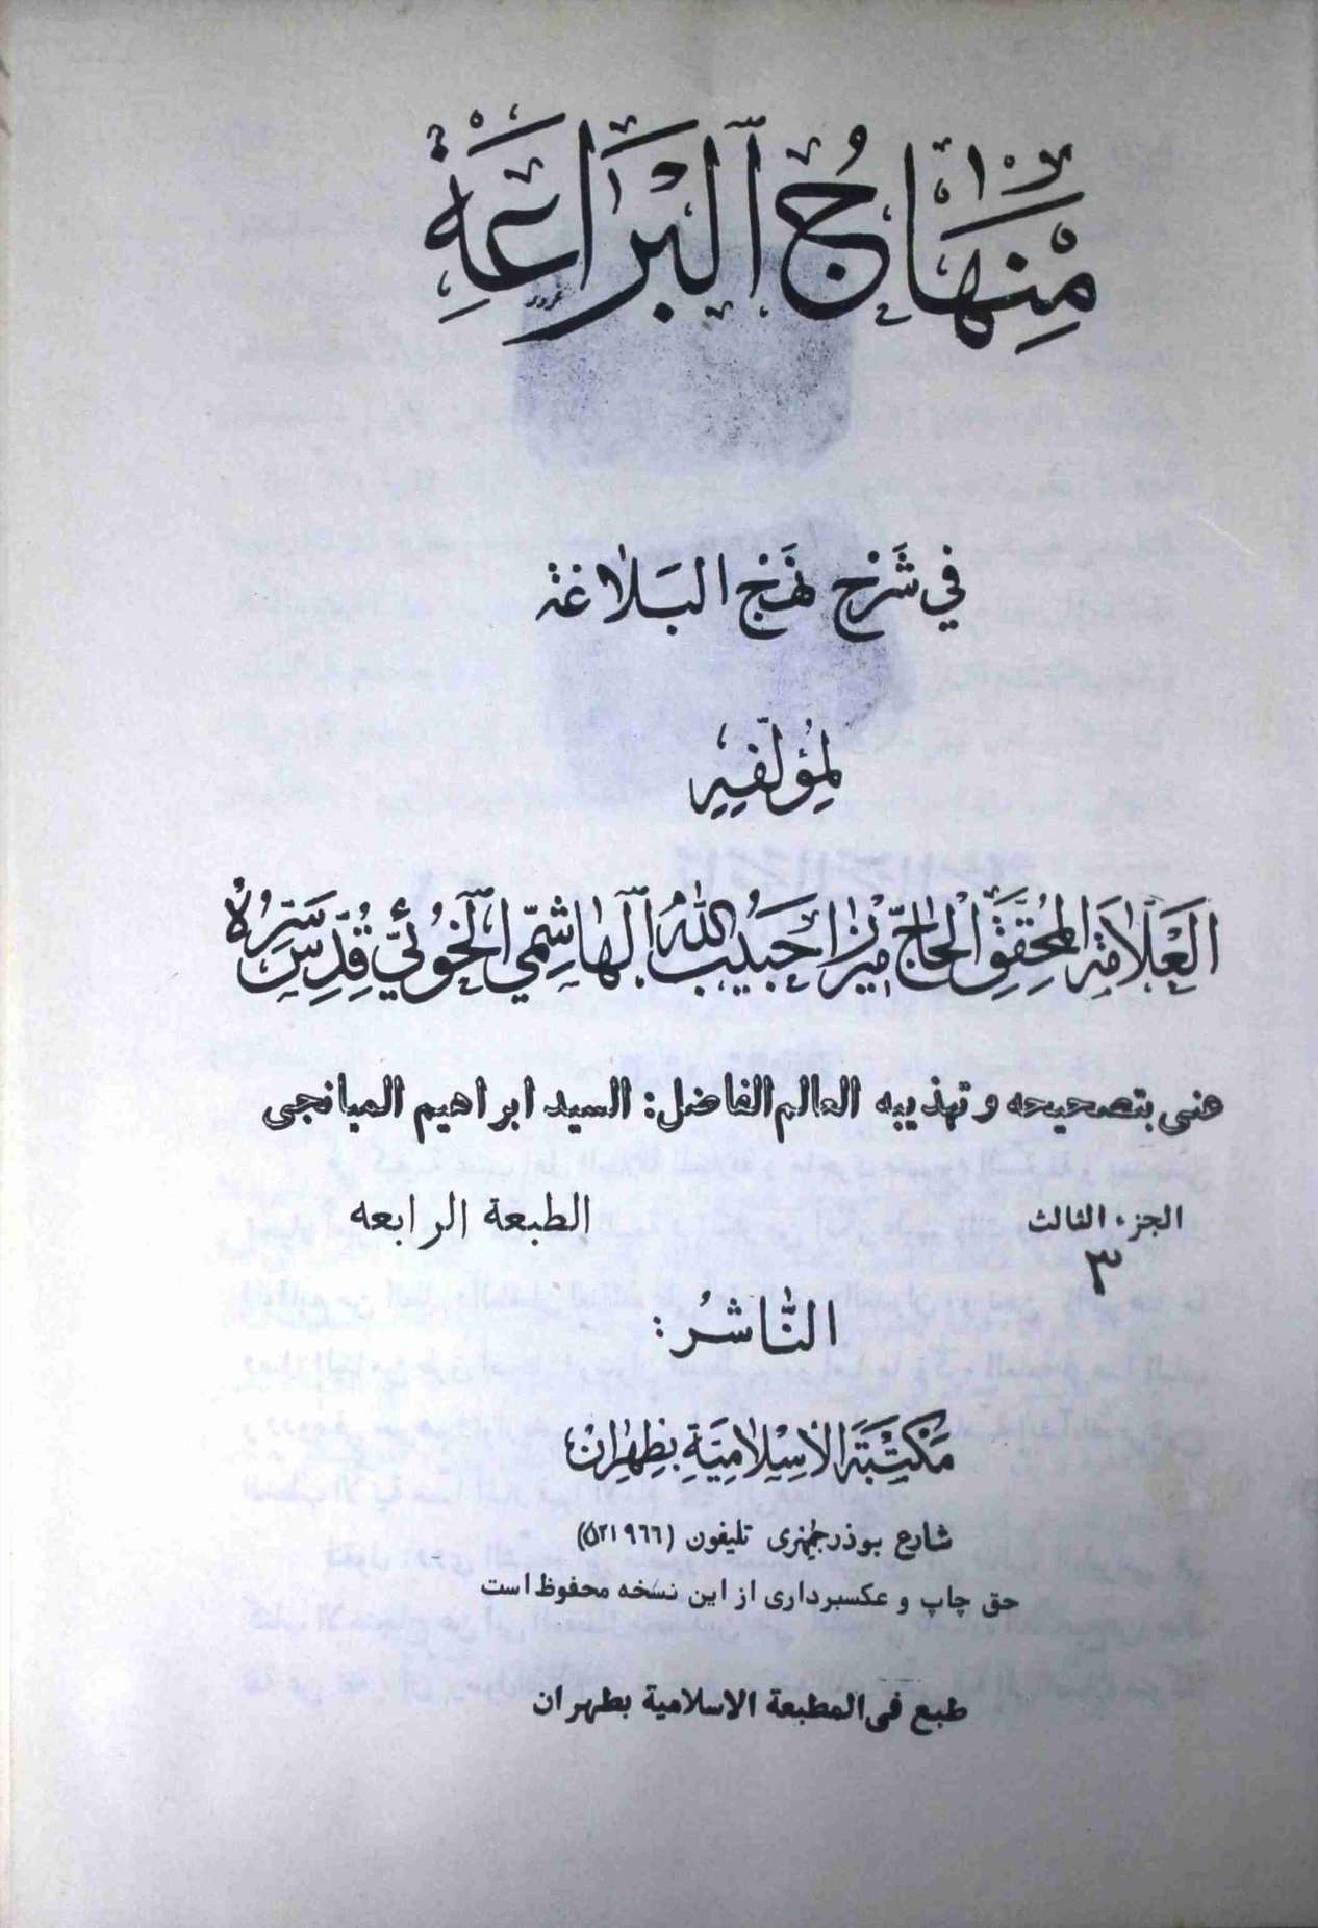 مِنْهَاجُ الْبَرَاعَةِ
في شَرْحِ نَهَجْ البَلَاغَة
لِمُؤلّفِيهِ
العَلّامَة المُحَقّقِ الحَاجّ مِيْرزا حَبيبُ اللهُ الهاشِمّي الخُوئيّ قُدِّسَ سَتِرُهُ
هنى بتصحيحه وتهذيبه العالم الفاضل: السيد ابراهيم الميانجى
الجزء الثالث الطبعة الرابعه
٣
النَّاشرُ :
مَكْتَبَة الْاسِلامِيَّة بِطِهرانْ
شارع بوذرجمهرى تليفون (٥٢١٩٦٦)
حق چاپ و عكسبردارى از اين نسخه محفوظ است
طبع فى المطبعة الاسلامية بطهران